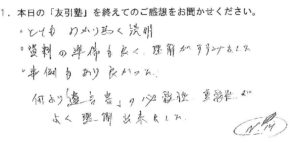 1. 本日の「友引塾」を終えてのご感想をお聞かせください。
・とてもわかり易く説明
・資料の準備も良く、理解がすすみました
・事例もあり良かった。
何より「遺言書」の必要性、重要性が
よく理解出来ました。